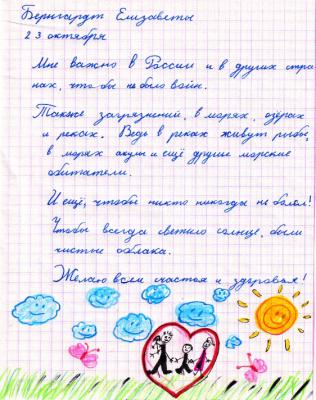 Бернгардт Елизаветы
23 октября
Мне важно в России и в других стра
нах, что бы не было войн.
Также загрязнений, в морях, озёрах
и реках. Ведь в реках живут рыбы,
в морях акулы и ещё другие морские
обитатели.
И ещё, чтобы никто никогда не болел!
Чтобы всегда светило солнце, были
чистые облака.
Желаю всем счастья и здоровья!